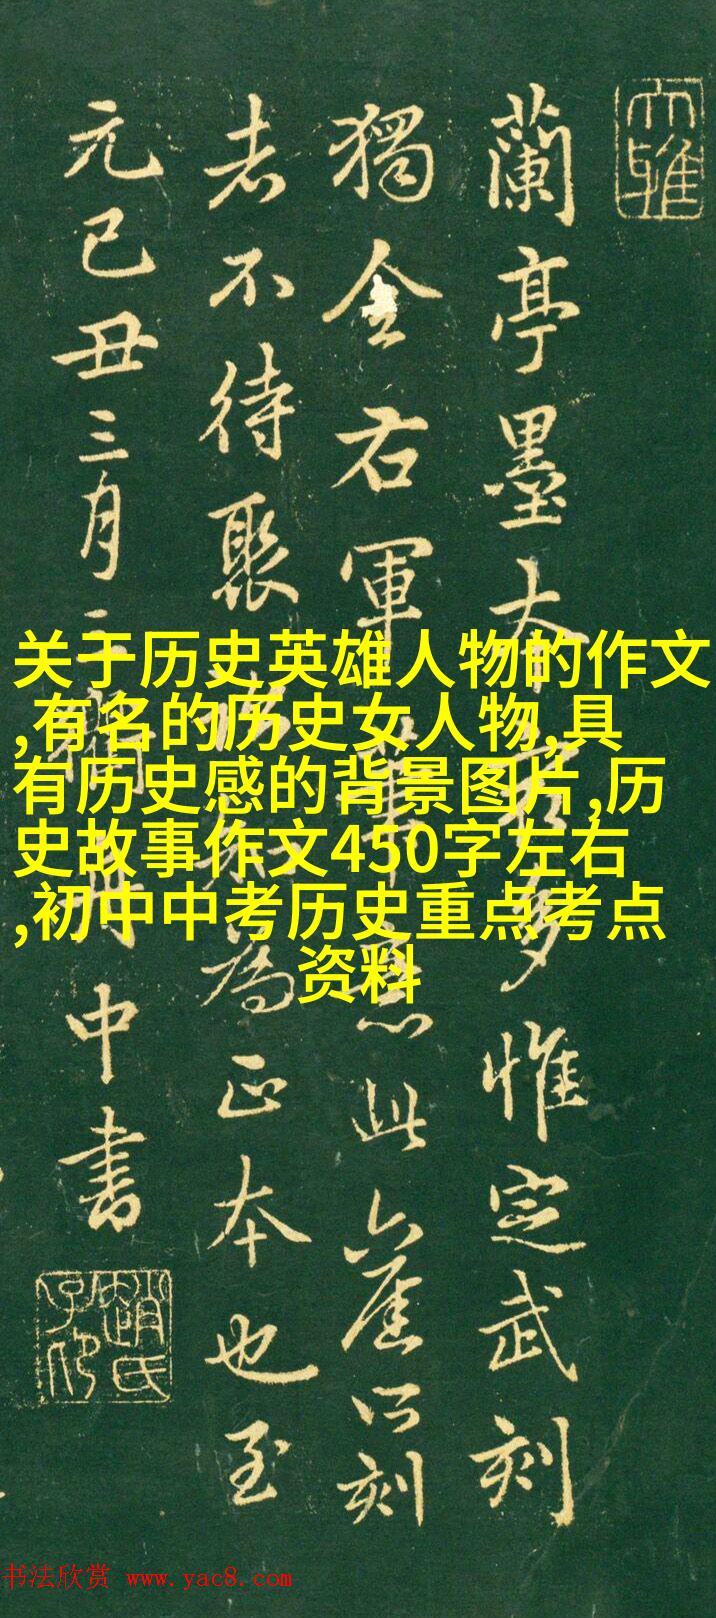 大雅
蘭亭墨本最多惟定武刻
獨全右軍筆意此舊所刻
者不待聚訟知為正本也至
元己丑三月三衢舟中書
趙氏子昂
关于历史英雄人物的作文
,有名的历史女人物,具
有历史感的背景图片,历
史故事作文450字左右
,初中中考历史重点考点
资料
书法欣赏 www.yac8.com